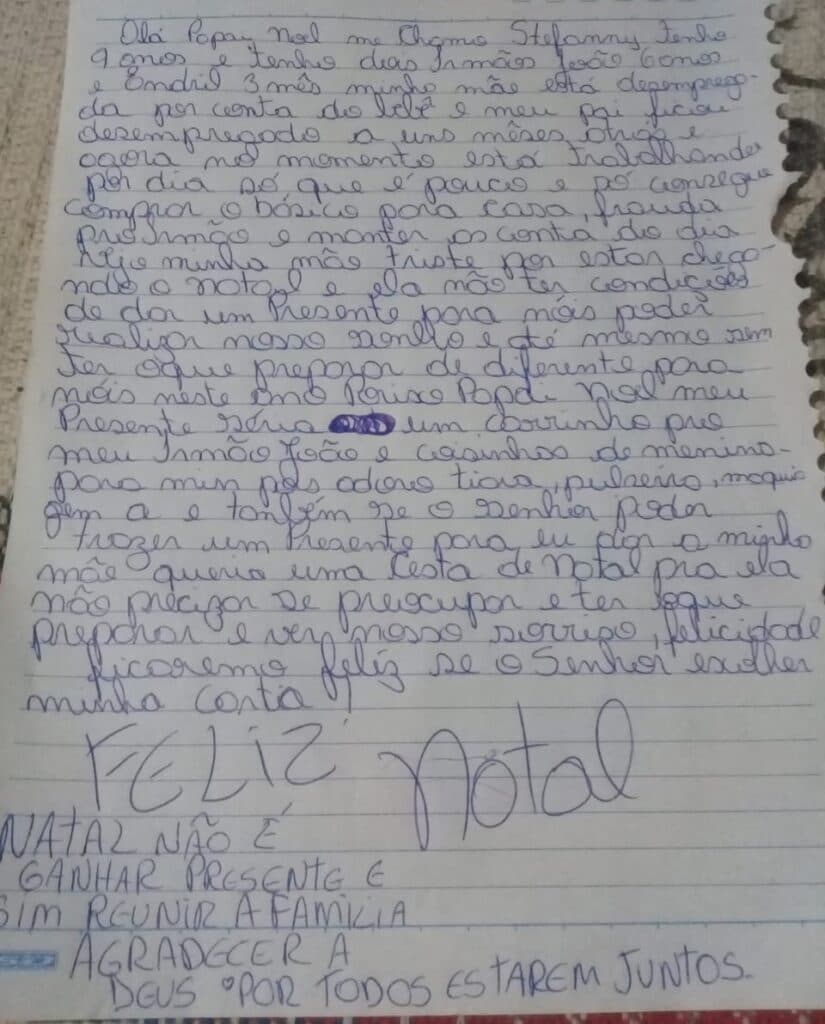 Olá Papai Noel me Chamo Stefanny tenho
9 anos e tenho dois Irmãos João 6 anos
e Endril 3 mês minha mãe está desemprega-
da por conta do bebê e meu pai ficou
desempregado a uns mêses atrás e
agora no momento está trabalhando
por dia só que é pouco e só consegue
comprar o básico para casa, frauda
pro Irmão e manter as conta do dia
vejo minha mãe triste por estar chega-
ndo o natal e ela não ter condições
de dar um Presente para nóis poder
realizar nosso sonho e até mesmo sem
ter oque preparar de diferente para
nóis neste ano Papai Noel meu
Presente séria um carrinho pro
meu Irmão João e coisinhas de menina
para mim pois adoro tiara, pulseira, maquia
gem a e também se o Senhor poder
trazer um Presente para eu dar a minha
mãe queria uma Cesta de Natal pra ela
não precizar se preocupar e ter oque
preparar e ver nosso sorriso, felicidade
ficaremo feliz se o Senhor escolher
minha carta !
FELIZ Natal
NATAL NÃO É
GANHAR PRESENTE E
SIM REUNIR A FAMILIA
AGRADECER A
DEUS POR TODOS ESTAREM JUNTOS.